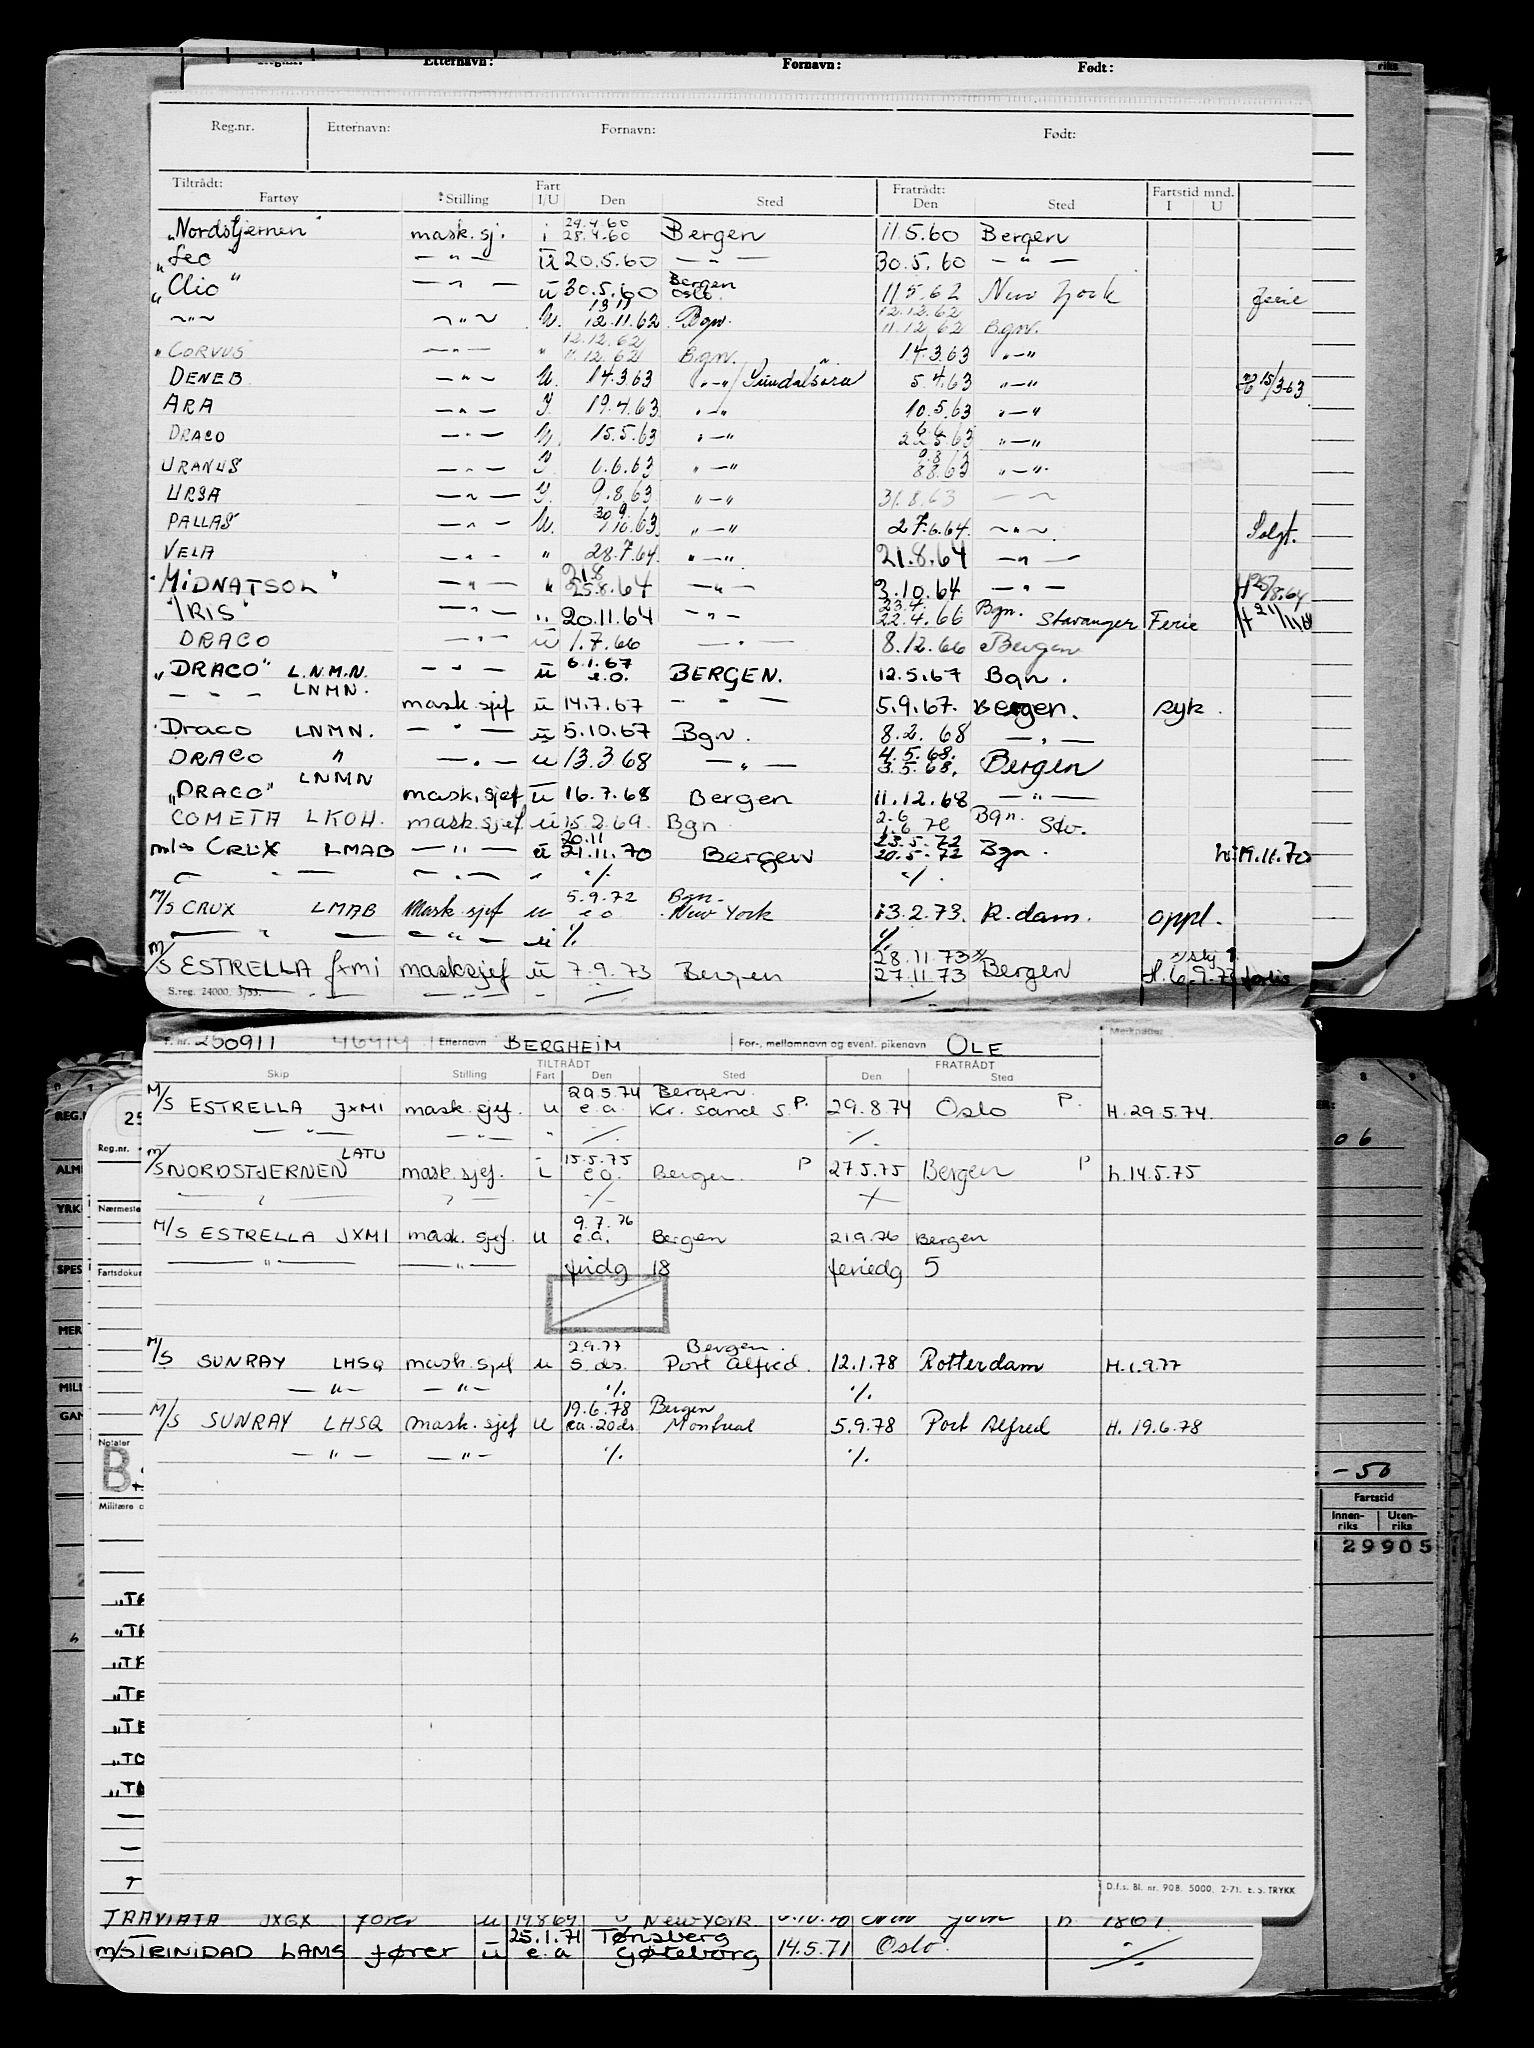 Etternavn: Fornavn: Født: riks
Reg.nr. Etternavn: Fornavn: Født:
Tiltrådt: Fratrådt: Fartstid mnd.
Fartøy Stilling Fart I/U Den Sted Den Sted I U
"Nordstjernen" mask.sj. i 29.4.60 28.4.60 Bergen 11.5.60 Bergen
"Leo — " — ü 20.5.60 — " — 30.5.60 — " —
"Clio" — " — ü 30.5.60 Bergen Oslo. 11.5.62 New York ferie
— " — — " — U. 13 11 12.11.62 Bgn. 12.12.62 11.12.62 Bgn.
"CORVUS — " — " 12.12.62 11.12.62 Bgn. 14.3.63 " — "
DENEB — " — U. 14.3.63 " — " / Sundalsøra 5.4.63 " — " 15/3-63
ARA — " — I. 19.4.63 " — " 10.5.63 " — "
DRACO — " — U. 15.5.63 " — " 6.6 22.5.63 " — "
URANUS — " — I. 6.6.63 " — " 9.8.63 8.8.63 " — "
URSA — " — I. 9.8.63 " — " 31.8.63 — " —
PALLAS — " — U. 30 9. 1.10.63 " — " 27.6.64 — " — Solgt.
VELA — " — " 28.7.64 " — " 21.8.64 — " —
"MIDNATSOL" — " — " 21.8 25.8.64 — " — 3.10.64 — " — H 25/8.64
"IRIS" — " — " 20.11.64 — " — 23.4. 22.4.66 Bgn. Stavanger Ferie H 21/11 64
DRACO — " — ü 1.7.66 — " — 8.12.66 Bergen
"DRACO" L.N.M.N. — " — ü 6.1.67 e.o. BERGEN. 12.5.67 Bgn.
— " — LNMN. mask.sjef ü 14.7.67 — " — 5.9.67. Bergen. syk.
Draco LNMN. — " — ü 5.10.67 Bgn. 8.2.68 — " —
DRACO " — " — ü 13.3 68 — " — 4.5.68. 3.5.68. Bergen
"DRACO" LNMN mask.sjef ü 16.7.68 Bergen 11.12.68 — " —
COMETA LKOH. mask.sjef ü 15.2.69. Bgn 2.6 1.6 70 Bgn. Stv.
m/s CRUX LMAB — " — ü 20.11 21.11.70 Bergen 23.5.72 20.5.72 Bgn. h: 19.11.70
— " — — " — " ·/. ·/.
M/S CRUX LMAB Mask.sjef u 5.9.72 e o Bgn. New York 13.2.73. R.dam. oppl.
— " — — " — ·/. ·/.
M/S ESTRELLA JXMI masksjef ü 7.9.73 Bergen 28.11 73 27.11.73 Bergen H. 6.9.73
S.reg. 24000, 3/55. — " — — " — " ·/. ·/.
F. nr. 250911 46914 Etternavn BERGHEIM For-, mellomnavn og event. pikenavn OLE Merknader
TILTRÅDT FRATRÅDT
Skip Stilling Fart Den Sted Den Sted
M/S ESTRELLA JXMI mask.sjef. u 29.5.74 e.a. Bergen Kr. sand S. P. 29.8.74 Oslo P. H. 29.5.74.
— " — — " — " ·/. ·/.
M/S NORDSTJERNEN LATU mask.sjef. i 15.5.75 e.o. Bergen. P 27.5.75 Bergen P h. 14.5.75
— " — " — ·/. ·/.
M/S ESTRELLA JXMI mask. sjef. u 9.7.76 e.a. Bergen 21.9.76 Bergen
— " — — " — fridg 18 feriedg 5
M/S SUNRAY LHSQ mask.sjef u 2.9.77 5 ds. Bergen. Port Alfred. 12.1.78 Rotterdam H. 1.9.77
— " — — " — ·/. ·/.
M/S SUNRAY LHSQ mask.sjef u 19.6.78 ca. 20 ds. Bergen Montreal 5.9.78 Port Alfred H. 19.6.78
— " — — " — ·/. ·/.
D.f.s. Bl. nr. 908. 5000. 2-71. E. S. TRYKK
REG.N
25
Reg.nr.
ALM
YRK
Nærmeste
SPES
Fartsdokur
MER
MILI
GAN
Notater
B
Militære
06
- 50
Fartstid
Innen-riks Uten-riks
29905
TRAVIATA JXGX fører u 19.8.69 New York h
m/s TRINIDAD LAMS fører ü 25.1.71 e.a Tønsberg Gøteborg 14.5.71 Oslo. ·/.